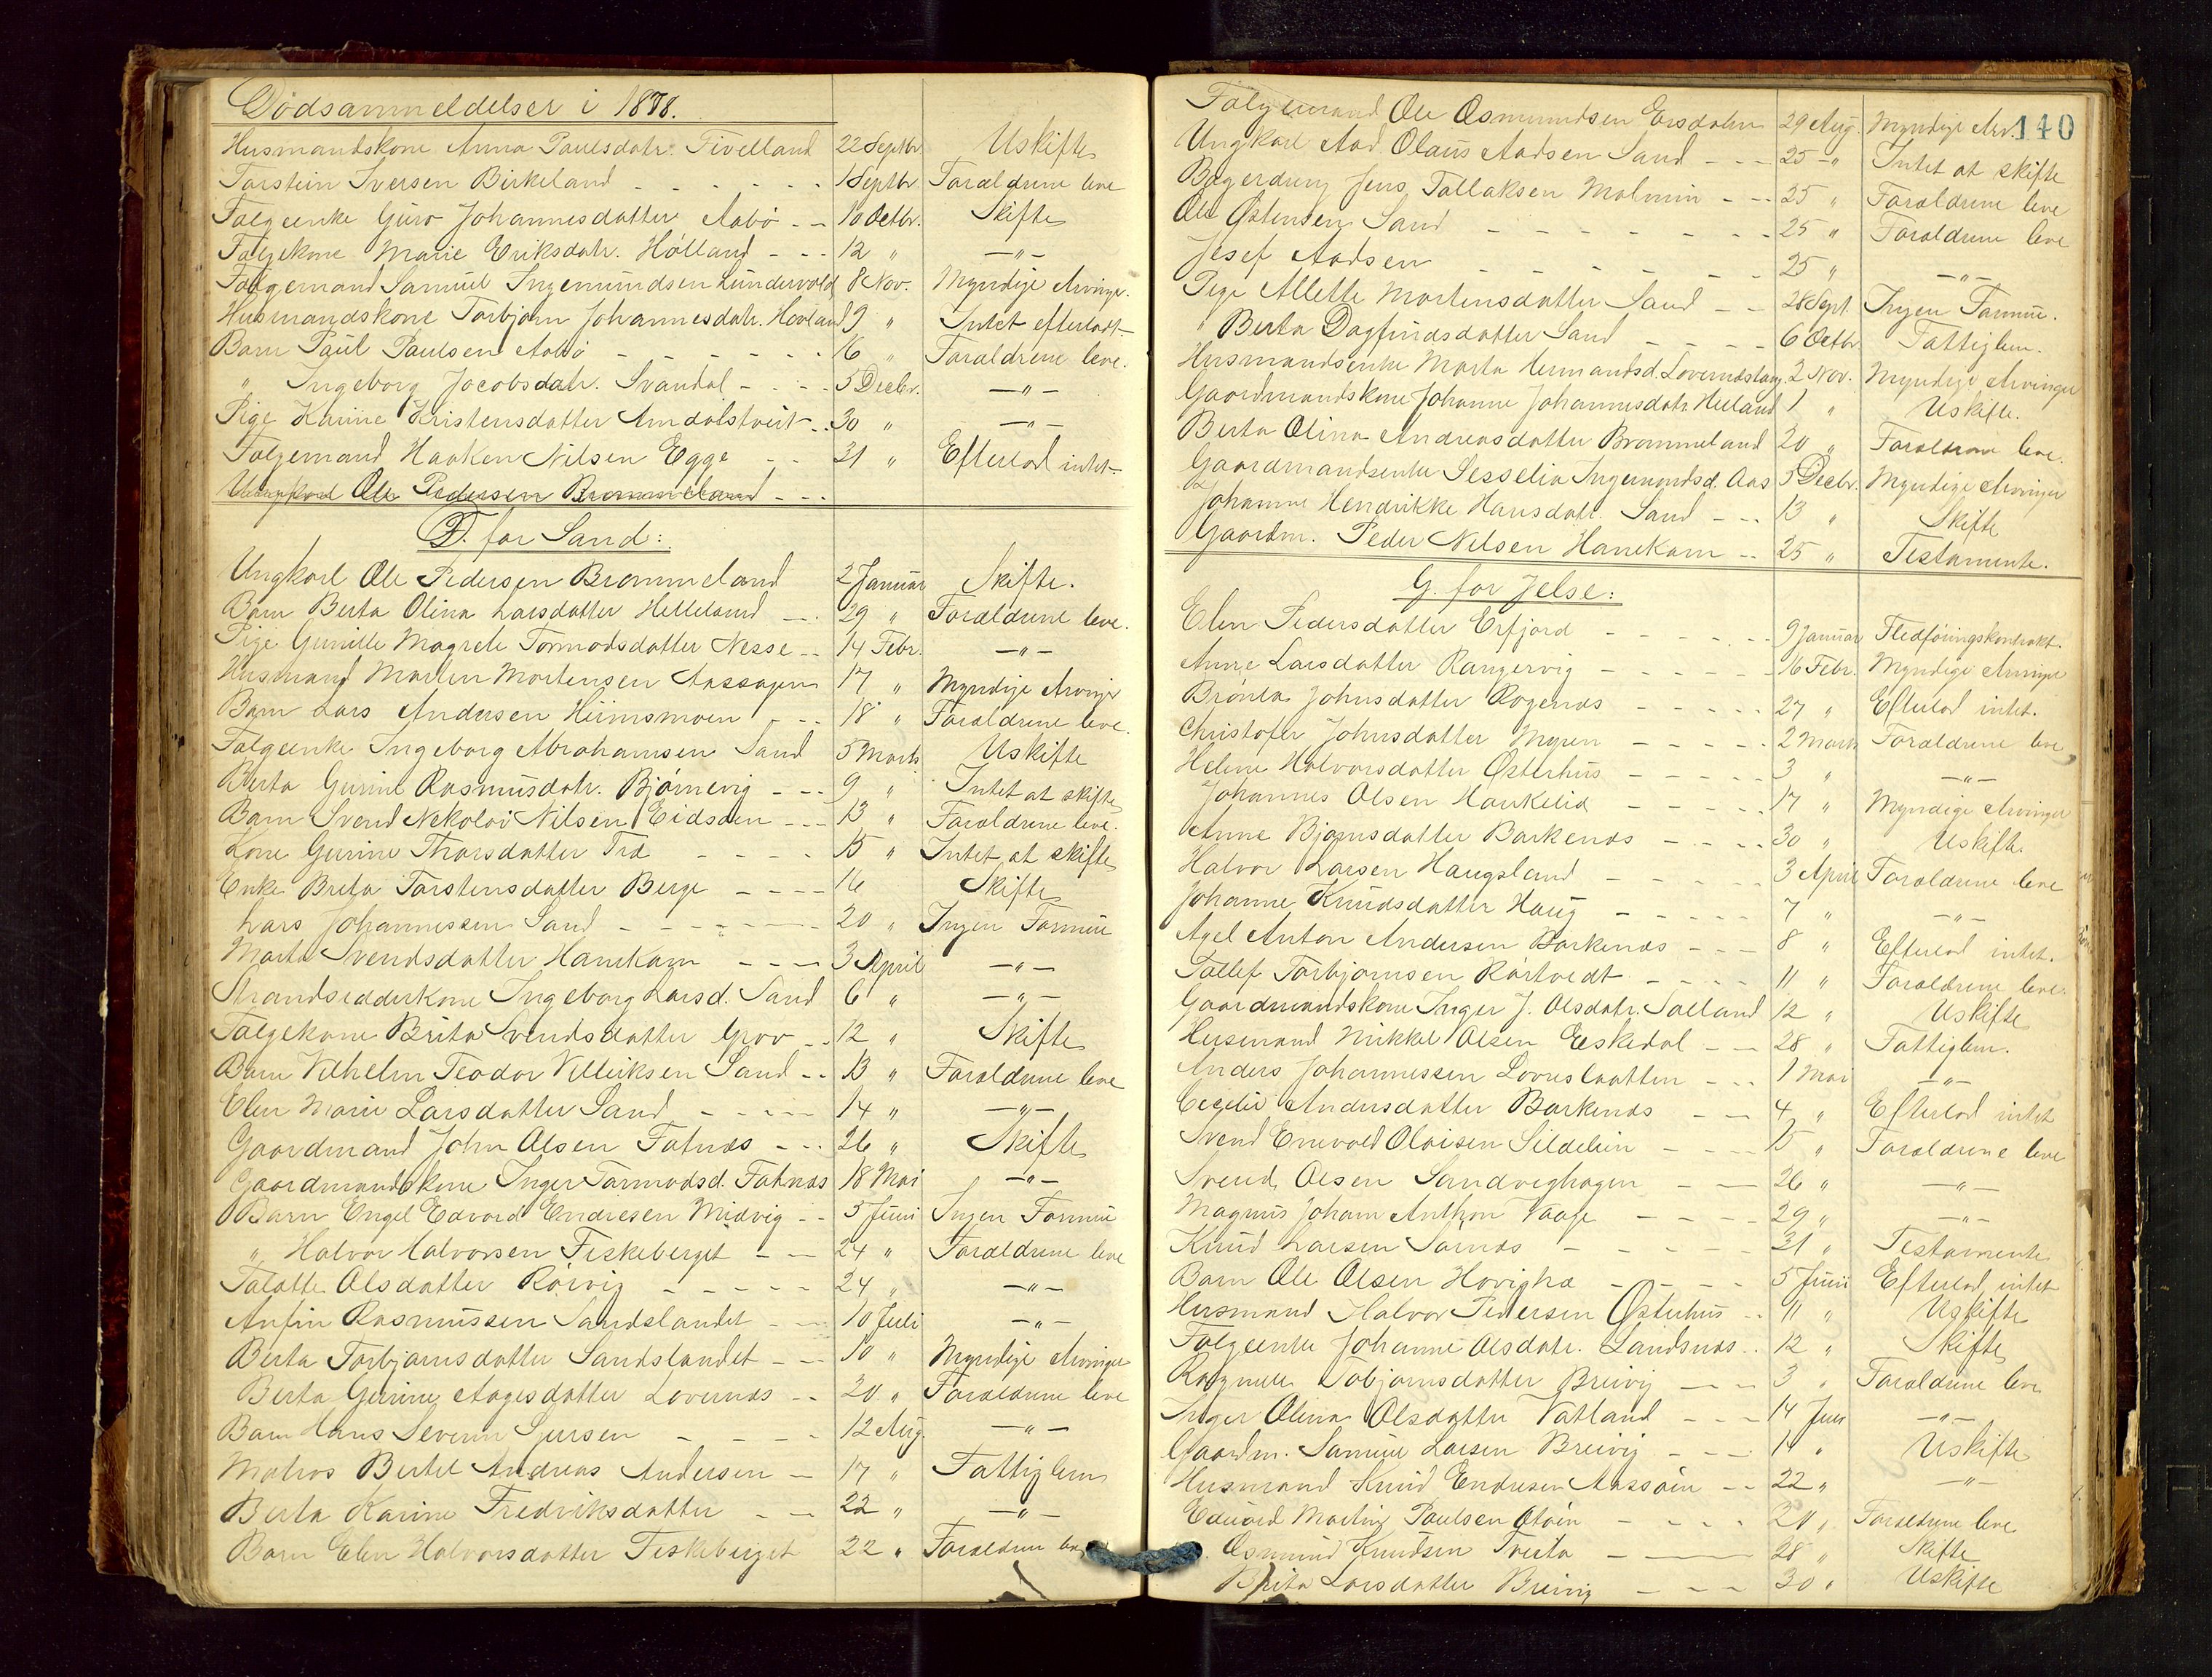 Dödsanmeldelser i 1878.
Husmandskone Anna Paulsdatr. Tivelland 22 Septbr Uskifte
Torstein Iversen Birkeland - - - - - - 1 Septbr Forældrene leve
Følgeenke Guro Johannesdatter Aabö - - 10 Octbr. Skifte
Følgekone Marie Eriksdatr. Hölland - - - 12 " - " -
Følgemand Samuel Ingemundsen Lundevold 8 Nov. Myndige Arvinge.
Husmandskone Torbjørn Johannesdatr. Hovland 9 " Intet efterladt
Barn Paul Paulsen Aabö - - - - - - 16 " Forældrene leve.
" Ingeborg Jacobsdatr. Svandal - - - - 5 Decbr. - " -
Pige Karine Kristensdatter Amdalstveit - - 30 " - " -
Følgemand Haaken Nilsen Egge - - 31 " Efterlod intet
Ungkarl Ole Pedersen Brommeland - - -
D. for Sand:
Ungkarl Ole Pedersen Brommeland 2 Januar Skifte.
Barn Berta Olina Larsdatter Helleland - - 29 " Forældrene leve.
Pige Gunille Magrete Tormodsdatter Nesse - - 14 Febr. - " -
Husmand Morten Mortensen Aassagen 17 " Myndige Arvinge
Barn Lars Andersen Hiimsmoen - - - 18 " Forældrene leve.
Følgeenke Ingeborg Abrahamsen Sand 5 Marts Uskifte
Berta Gurine Rasmusdatr. Bjørnevig - - - 9 " Intet at skifte
Barn Svend Nekolai Nilsen Eidsaaen - - - 13 " Forældrene leve.
Kone Gurine Thorsdatter Træ - - - - 15 " Intet at skifte
Enke Breta Torstensdatter Berge - - - - 16 Skifte
Lars Johannessen Sand - - - - - - 20 " Ingen Formue
Marta Svendsdatter Hanekam - - - 3 April - " -
Strandsidderkone Ingeborg Larsd. Sand 6 " - " -
Følgekone Brita Svendsdatter Grov - - 12 " Skifte
Barn Vilhelm Teodor Villiksen Sand - - 13 " Forældrene leve
Elen Marie Larsdatter Sand - - - - 14 " - " -
Gaardmand John Olsen Fatnæs - - - 26 " Skifte
Gaardmandskone Inger Tormodsd. Fatnæs 18 Mai - " -
Barn Engel Edvard Endresen Midvig - - 5 Juni Ingen Formue
" Halvor Halvorsen Fiskeberget - - 24 " Forældrene leve
Talatte Olsdatter Rörvig - - - - - 24 " - " -
Anfin Rasmussen Sandslandet - - 10 Juli - " -
Berta Torbjørnsdatter Sandslandet - - 10 " Myndige Arvinger
Berta Gurine Aagesdatter Lovernæs - - 20 " Forældrene leve
Barn Hans Severin Sjursen - - - - 12 Aug. - " -
Matros Bertel Andreas Andersen - 17 " Fattiglem
Berta Karine Fredriksdatter - - 22 " - " -
Barn Elen Halvorsdatter Fiskeberget 22 " Forældrene leve
140
Følgemand Ole Osmundsen Ersdalen 29 Aug. Myndige Arv.
Ungkarl Aad Olaus Aadsen Sand - - - 25 - " Intet at skifte
Bagerdreng Jens Tollaksen Malmin - - 25 " Forældrene leve
Ole Østensen Sand - - - - - - - 25 " Forældrene leve
Josef Aadsen - - - - - - - 25 " - " -
Pige Allette Mortensdatter Sand - - 28 Sept. Ingen Formue.
" Berta Dagfinsdatter Sand - - - - 6 Octbr. Fattiglem.
Husmandsenke Marta Hermandsd. Lovernæstang. 2 Nov. Myndige Arvinger
Gaardmandskone Johanne Johannesdatr. Heland 1 " Uskifte.
Berta Olina Andreasdatter Brommeland 20 " Forældrene leve.
Gaardmandsenke Sesselia Ingemundsd. Aas 5 Decbr. Myndige Arvinger
Johanne Hendrikke Hansdatr. Sand - - - 13 " Skifte
Gaardm. Peder Nilsen Hanekam - - 25 " Testamente.
G. for Jelse:
Elen Pedersdatter Erfjord - - - - - - 9 Januar Fledføringskontrakt.
Anne Larsdatter Rangervig - - - - - - 16 Febr. Myndige Arvinge
Brönla Johnsdatter Rogenæs - - - - - 27 " Efterlod intet.
Christofer Johnsdatter Myren - - - - - 2 Marts Forældrene leve
Helene Halvorsdatter Østerhus - - - - - 3 " - " -
Johannes Olsen Haukelid - - - - - 17 " Myndige Arvinger
Anne Bjørnsdatter Barkenæs - - - - 30 " Uskifte.
Halvor Larsen Haugsland - - - - - 3 April Forældrene leve
Johanne Knudsdatter Haug - - - - - 7 " - " -
Axel Anton Andersen Barkenæs - - - 8 " Efterlod intet.
Tollef Torbjørnsen Rörtvedt - - - - 11 " Forældrene leve.
Gaardmandskone Inger J. Olsdatr. Solland 12 " Uskifte
Husmand Mikkel Olsen Eskedal - - 28 " Fattiglem.
Anders Johannessen Lovraslaatten - - - 1 Mai - " -
Cecelie Andersdatter Barkenæs - - 4 " Efterlod intet
Svend Enevold Olaisen Sildelien - - - - 15 " Forældrene leve
Svend Olsen Sandveghagen - - 26 " - " -
Magnus Johan Anthon Vaage - - - - 29 " - " -
Knud Larsen Sarnæs - - - - - 31 " Testamente
Barn Ole Olsen Hovighæ - - - - 5 Juni Efterlod intet
Husmand Halvor Pedersen Østerhus - - 11 " Uskifte
Følgeenke Johanne Olsdatr. Landsnæs - - 12 " Skifte
Ragnille Tobjørnsdatter Breivig - - - 3 " Forældrene leve
Inger Olina Olsdatter Vatland - - - 14 Juli - " -
Gaardm. Samuel Larsen Breivig - - - 14 " Uskifte
Husmand Knud Endresen Aassøien - - 22 " - " -
Edvard Martin Paulsen - - - - 20 " Forældrene leve
Osmund Knudsen Tveita - - - 28 " Skifte
Brita Larsdatter Breivig - - - 30 " Uskifte